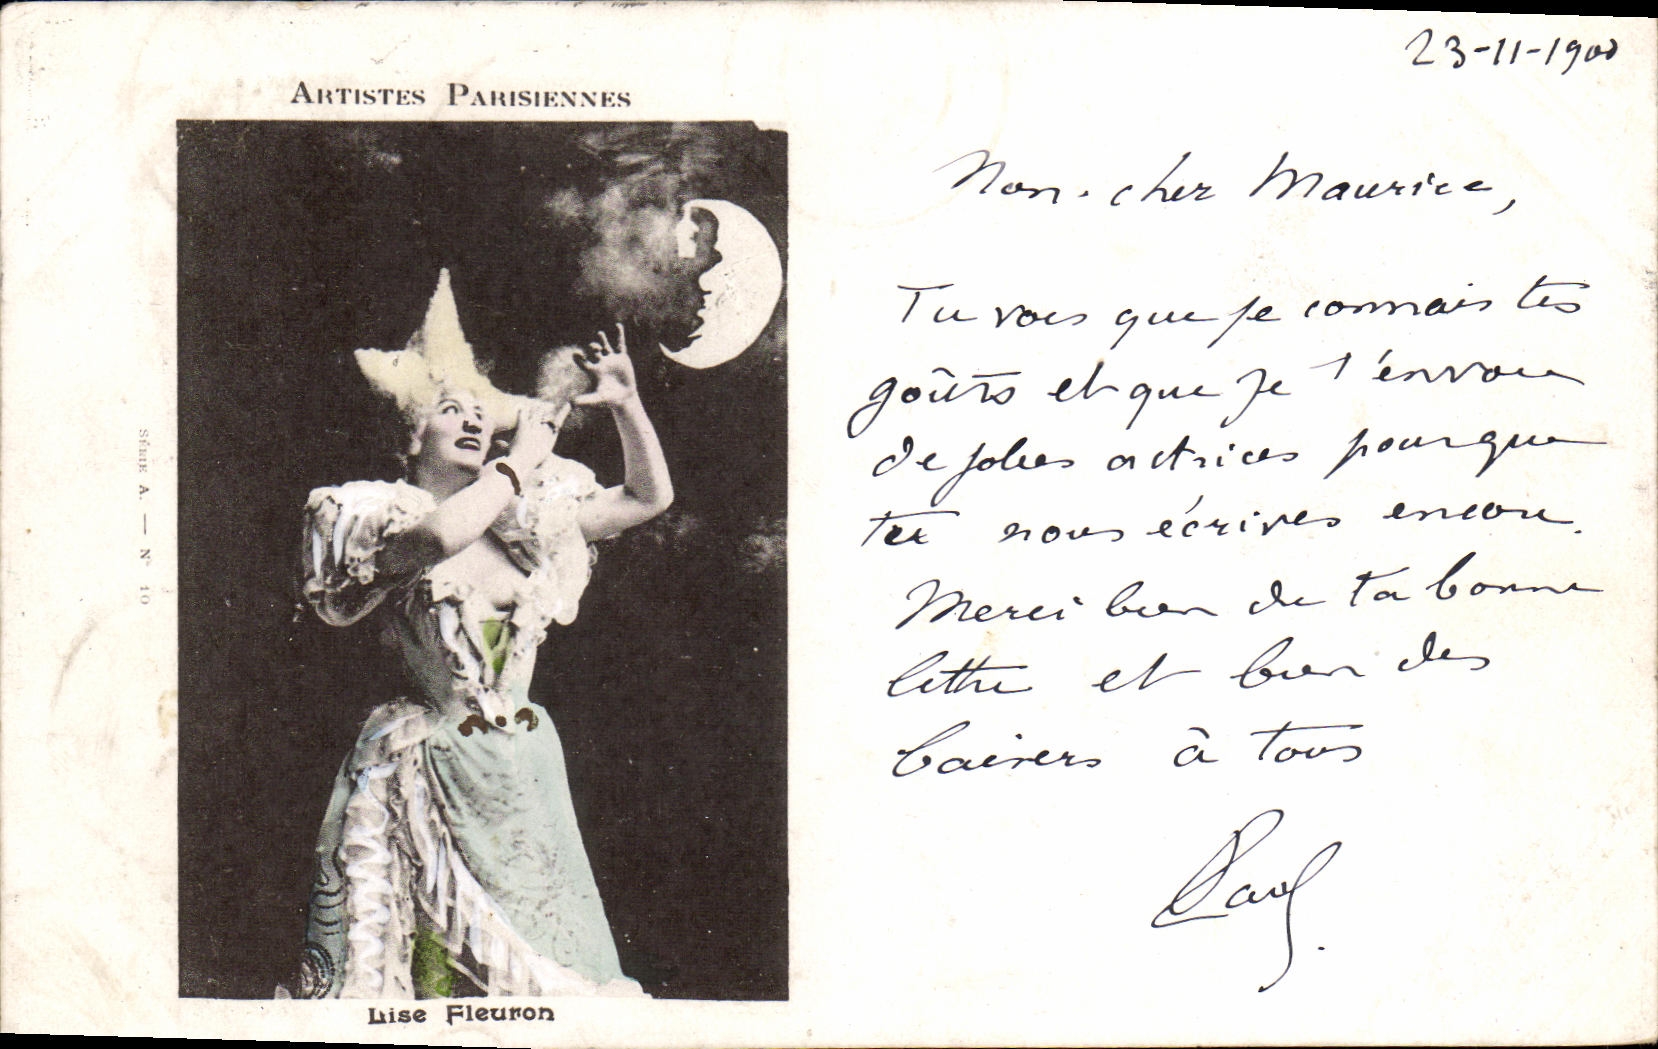 ARTISTES PARISIENNES
SÉRIE A. — N° 10
Lise Fleuron
23-11-1900
Mon cher Maurice,
Tu vois que je connais tes
goûts et que je t'envoie
de jolies actrices pour que
tu nous écrives encore.
Merci bien de ta bonne
lettre et bien des
baisers à tous
Paul.